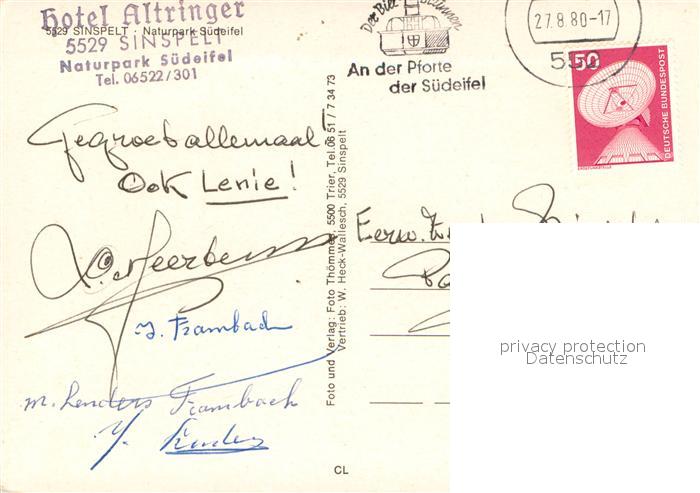 Hotel Altringer
5529 SINSPELT · Naturpark Südeifel
5529 SINSPELT
Naturpark Südeifel
Tel. 06522/301
Der
An der Pforte
der Südeifel
27.8.80-17
550
50
DEUTSCHE BUNDESPOST
Gegroet allemaal!
Ook Lenie!
J. Frambach
m. Lenders Frambach
Y. Lenders
Eerw.
Foto und Verlag: Foto Thömmes, 5500 Trier, Tel. 06 51 / 7 34 73
Vertrieb: W. Heck-Wallesch, 5529 Sinspelt
CL
privacy protection
Datenschutz